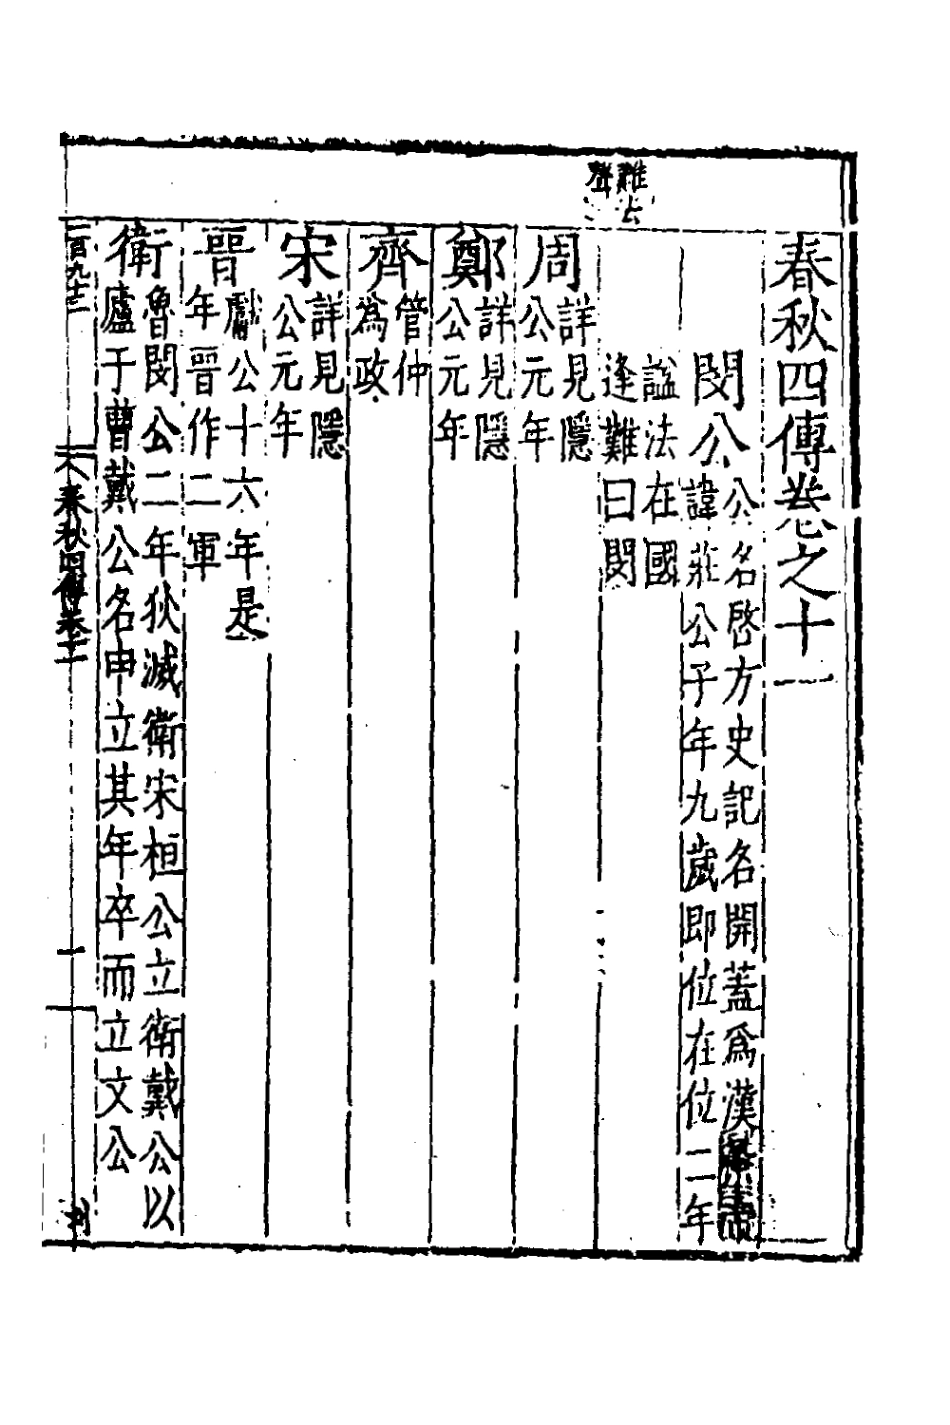 春秋四傳卷之十一
閔公公名啓方史記名開蓋爲漢景帝
諱莊公子年九歲即位在位二年
謚法在國
逢難曰閔
難去
聲
周詳見隱
公元年
鄭詳見隱
公元年
齊管仲
爲政
宋詳見隱
公元年
晉獻公十六年是
年晉作二軍
衛魯閔公二年狄滅衛宋桓公立衛戴公以
廬于曹戴公名申立其年卒而立文公
一百九十三
春秋四傳卷十一
一